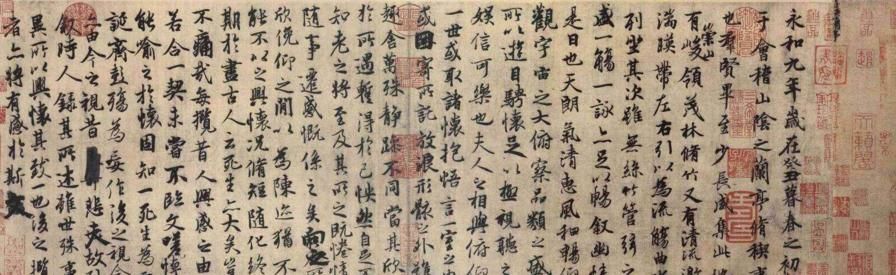 永和九年歲在癸丑暮春之初
于會稽山陰之蘭亭脩稧
也羣賢畢至少長咸集此
有崇山峻領茂林脩竹又有清流
湍暎帶左右引以為流觴曲
列坐其次雖無絲竹管弦之
盛一觴一詠亦足以暢敘幽情
是日也天朗氣清惠風和暢仰
觀宇宙之大俯察品類之盛
所以遊目騁懷足以極視聽之
娛信可樂也夫人之相與俯仰
一世或取諸懷抱悟言一室之
或因寄所託放浪形骸之外雖
趣舍萬殊靜躁不同當其欣
於所遇蹔得於己怏然自足
知老之將至及其所之既惓情
隨事遷感慨係之矣向之
欣俛仰之閒以為陳迹猶不
能不以之興懷況脩短隨化終
期於盡古人云死生亦大矣豈
不痛哉每攬昔人興感之由
若合一契未嘗不臨文嗟悼
能喻之於懷固知一死生為
誕齊彭殤為妄作後之視今
亦由今之視昔悲夫故列
敘時人錄其所述雖世殊事
異所以興懷其致一也後之攬
者亦將有感於斯文